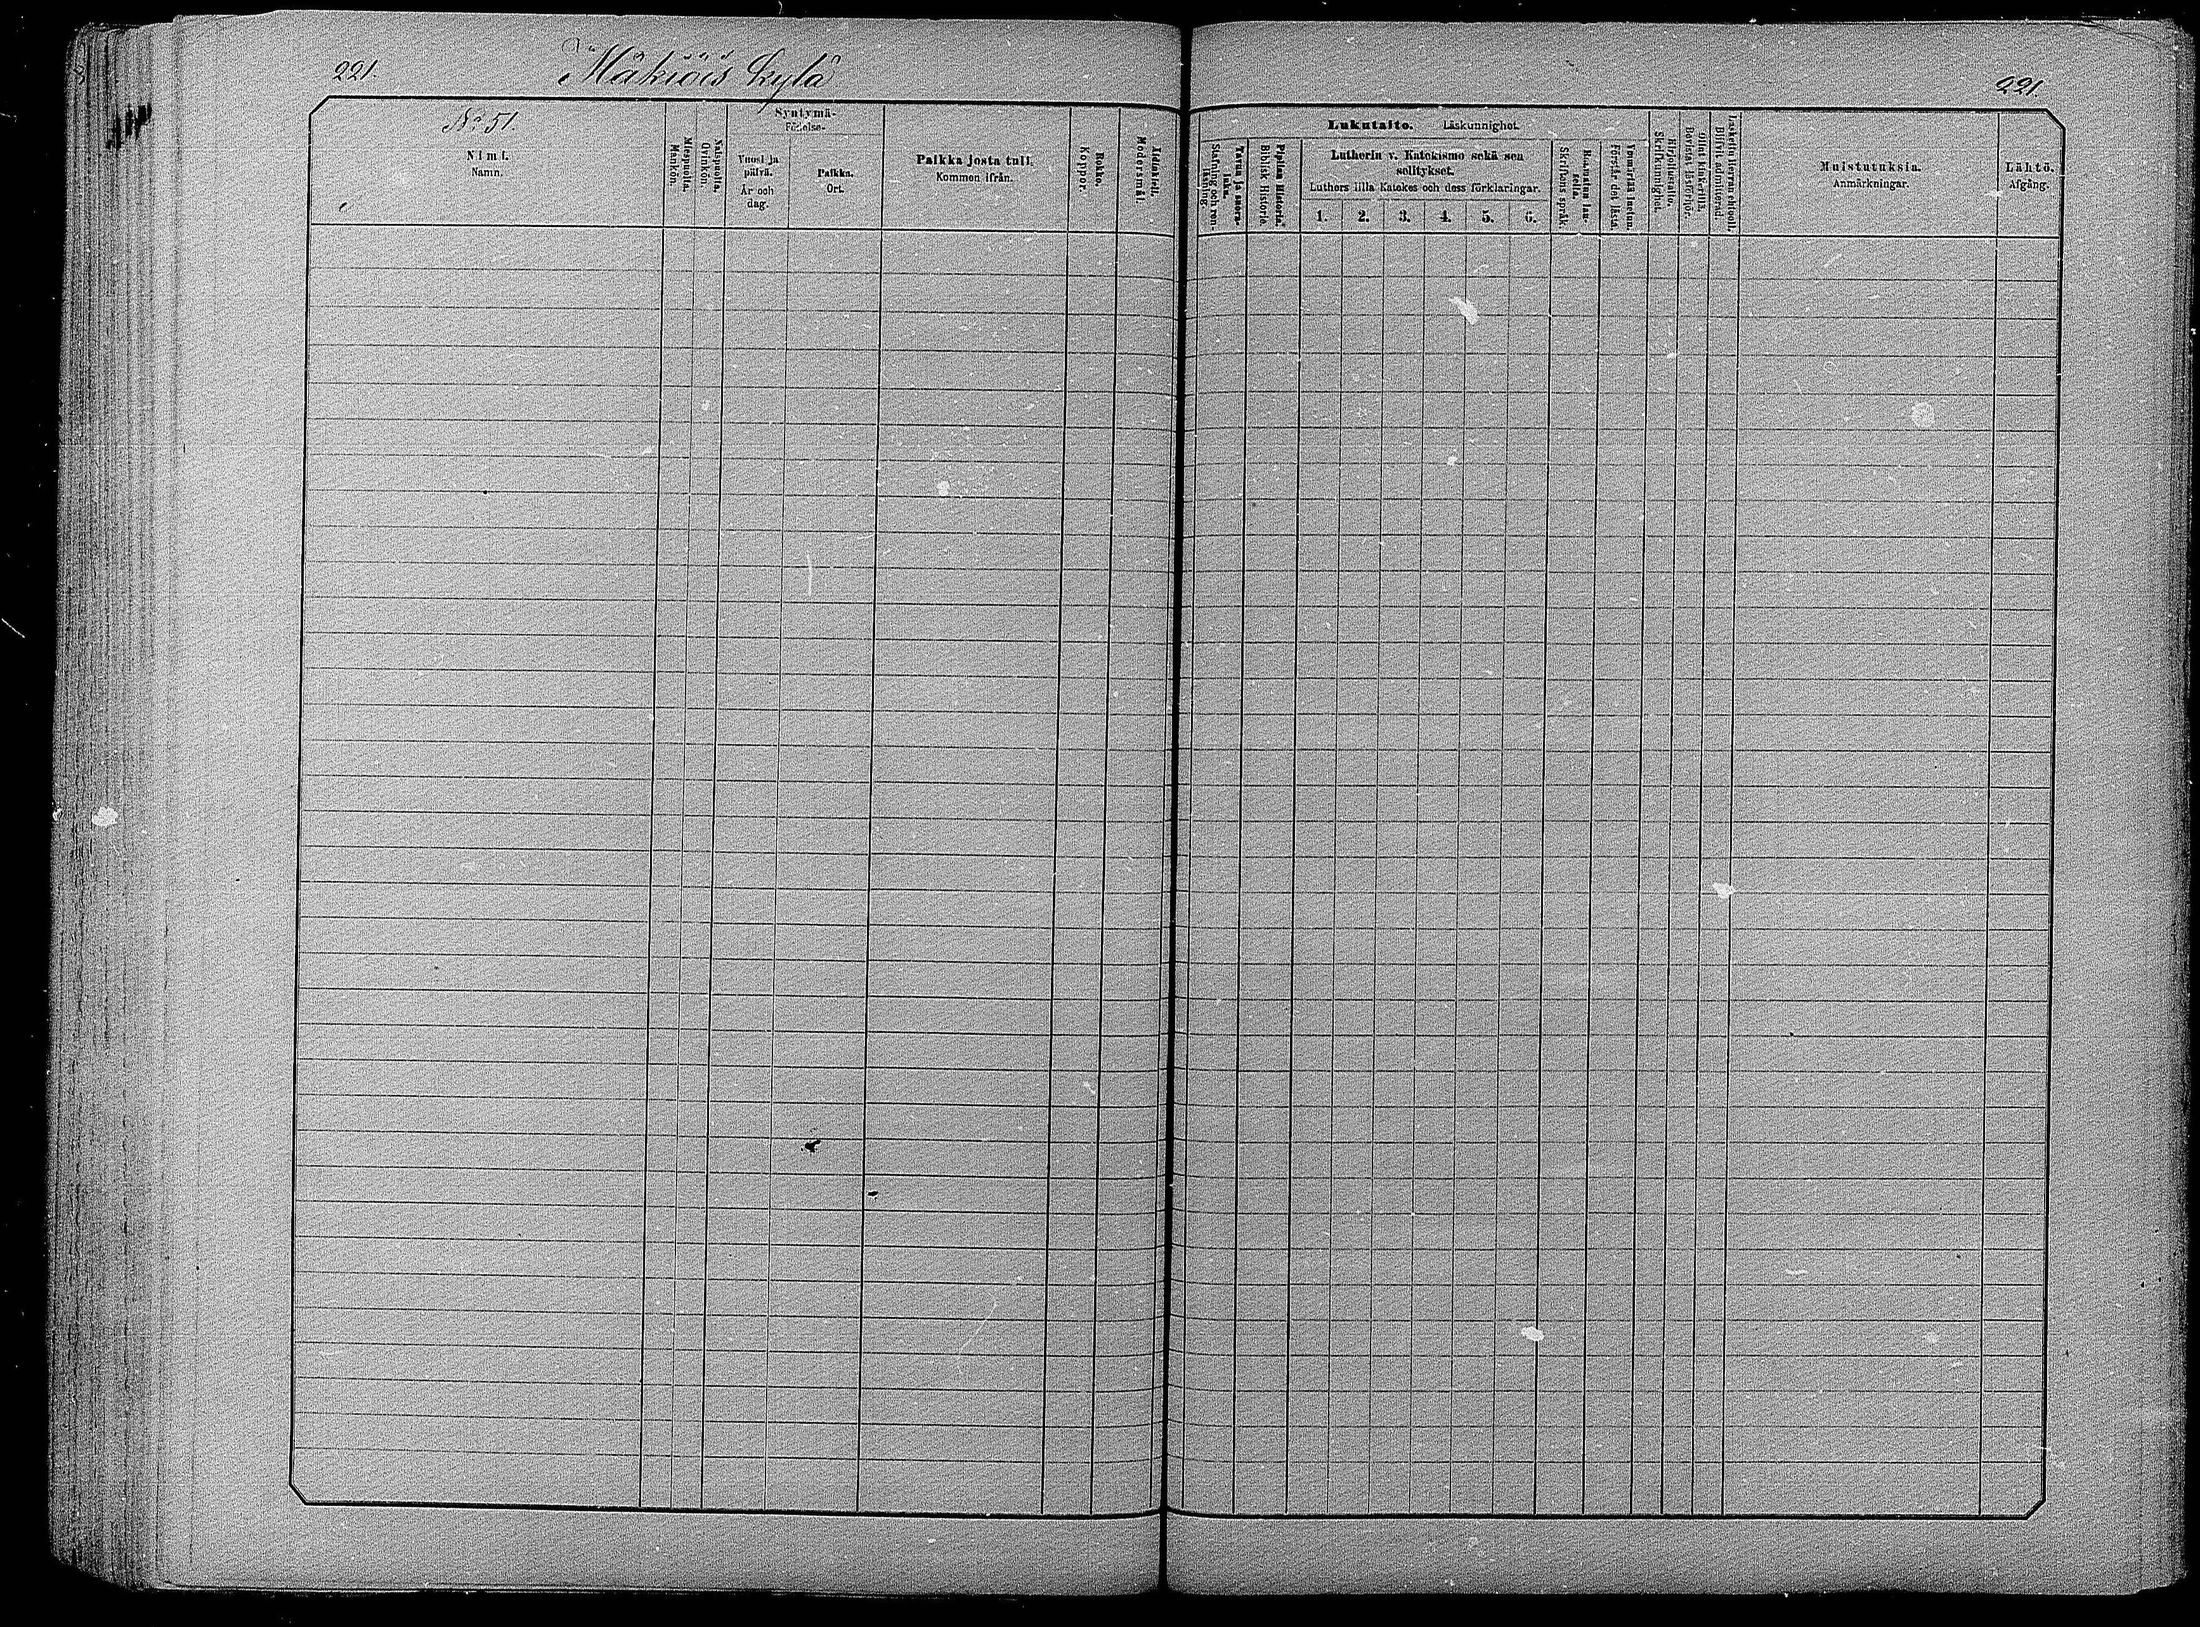 221.
Mäkiäis kylä
221.
No 51.
Nimi.
Namn.
Miespuolia.
Mankön.
Naispuolia.
Qvinkön.
Syntymä-
Födelse-
Vuosi ja
päivä.
År och
dag.
Paikka.
Ort.
Paikka josta tuli.
Kommen ifrån.
Rokko.
Koppor.
Äidinkieli.
Modersmål.
Lukutaito. Läskunnighet.
Tavuu ja suora-
luku.
Stafning och ren-
läsning.
Piplian Historia.
Biblisk Historie.
Lutherin v. Katekismo sekä sen
selitykset.
Luthers lilla Katekes och dess förklaringar.
1. 2. 3. 4. 5. 6.
Raamatun lau-
seita.
Skriftens språk.
Ymmärtää luetun.
Förstår det lästa.
Kirjoitustaito.
Skrifkunnighet.
Ollut kinkerillä.
Bevistat läsförhör.
Laskettu Herran ehtoolle.
Blifvit admitterad.
Muistutuksia.
Anmärkningar.
Lähtö.
Afgång.